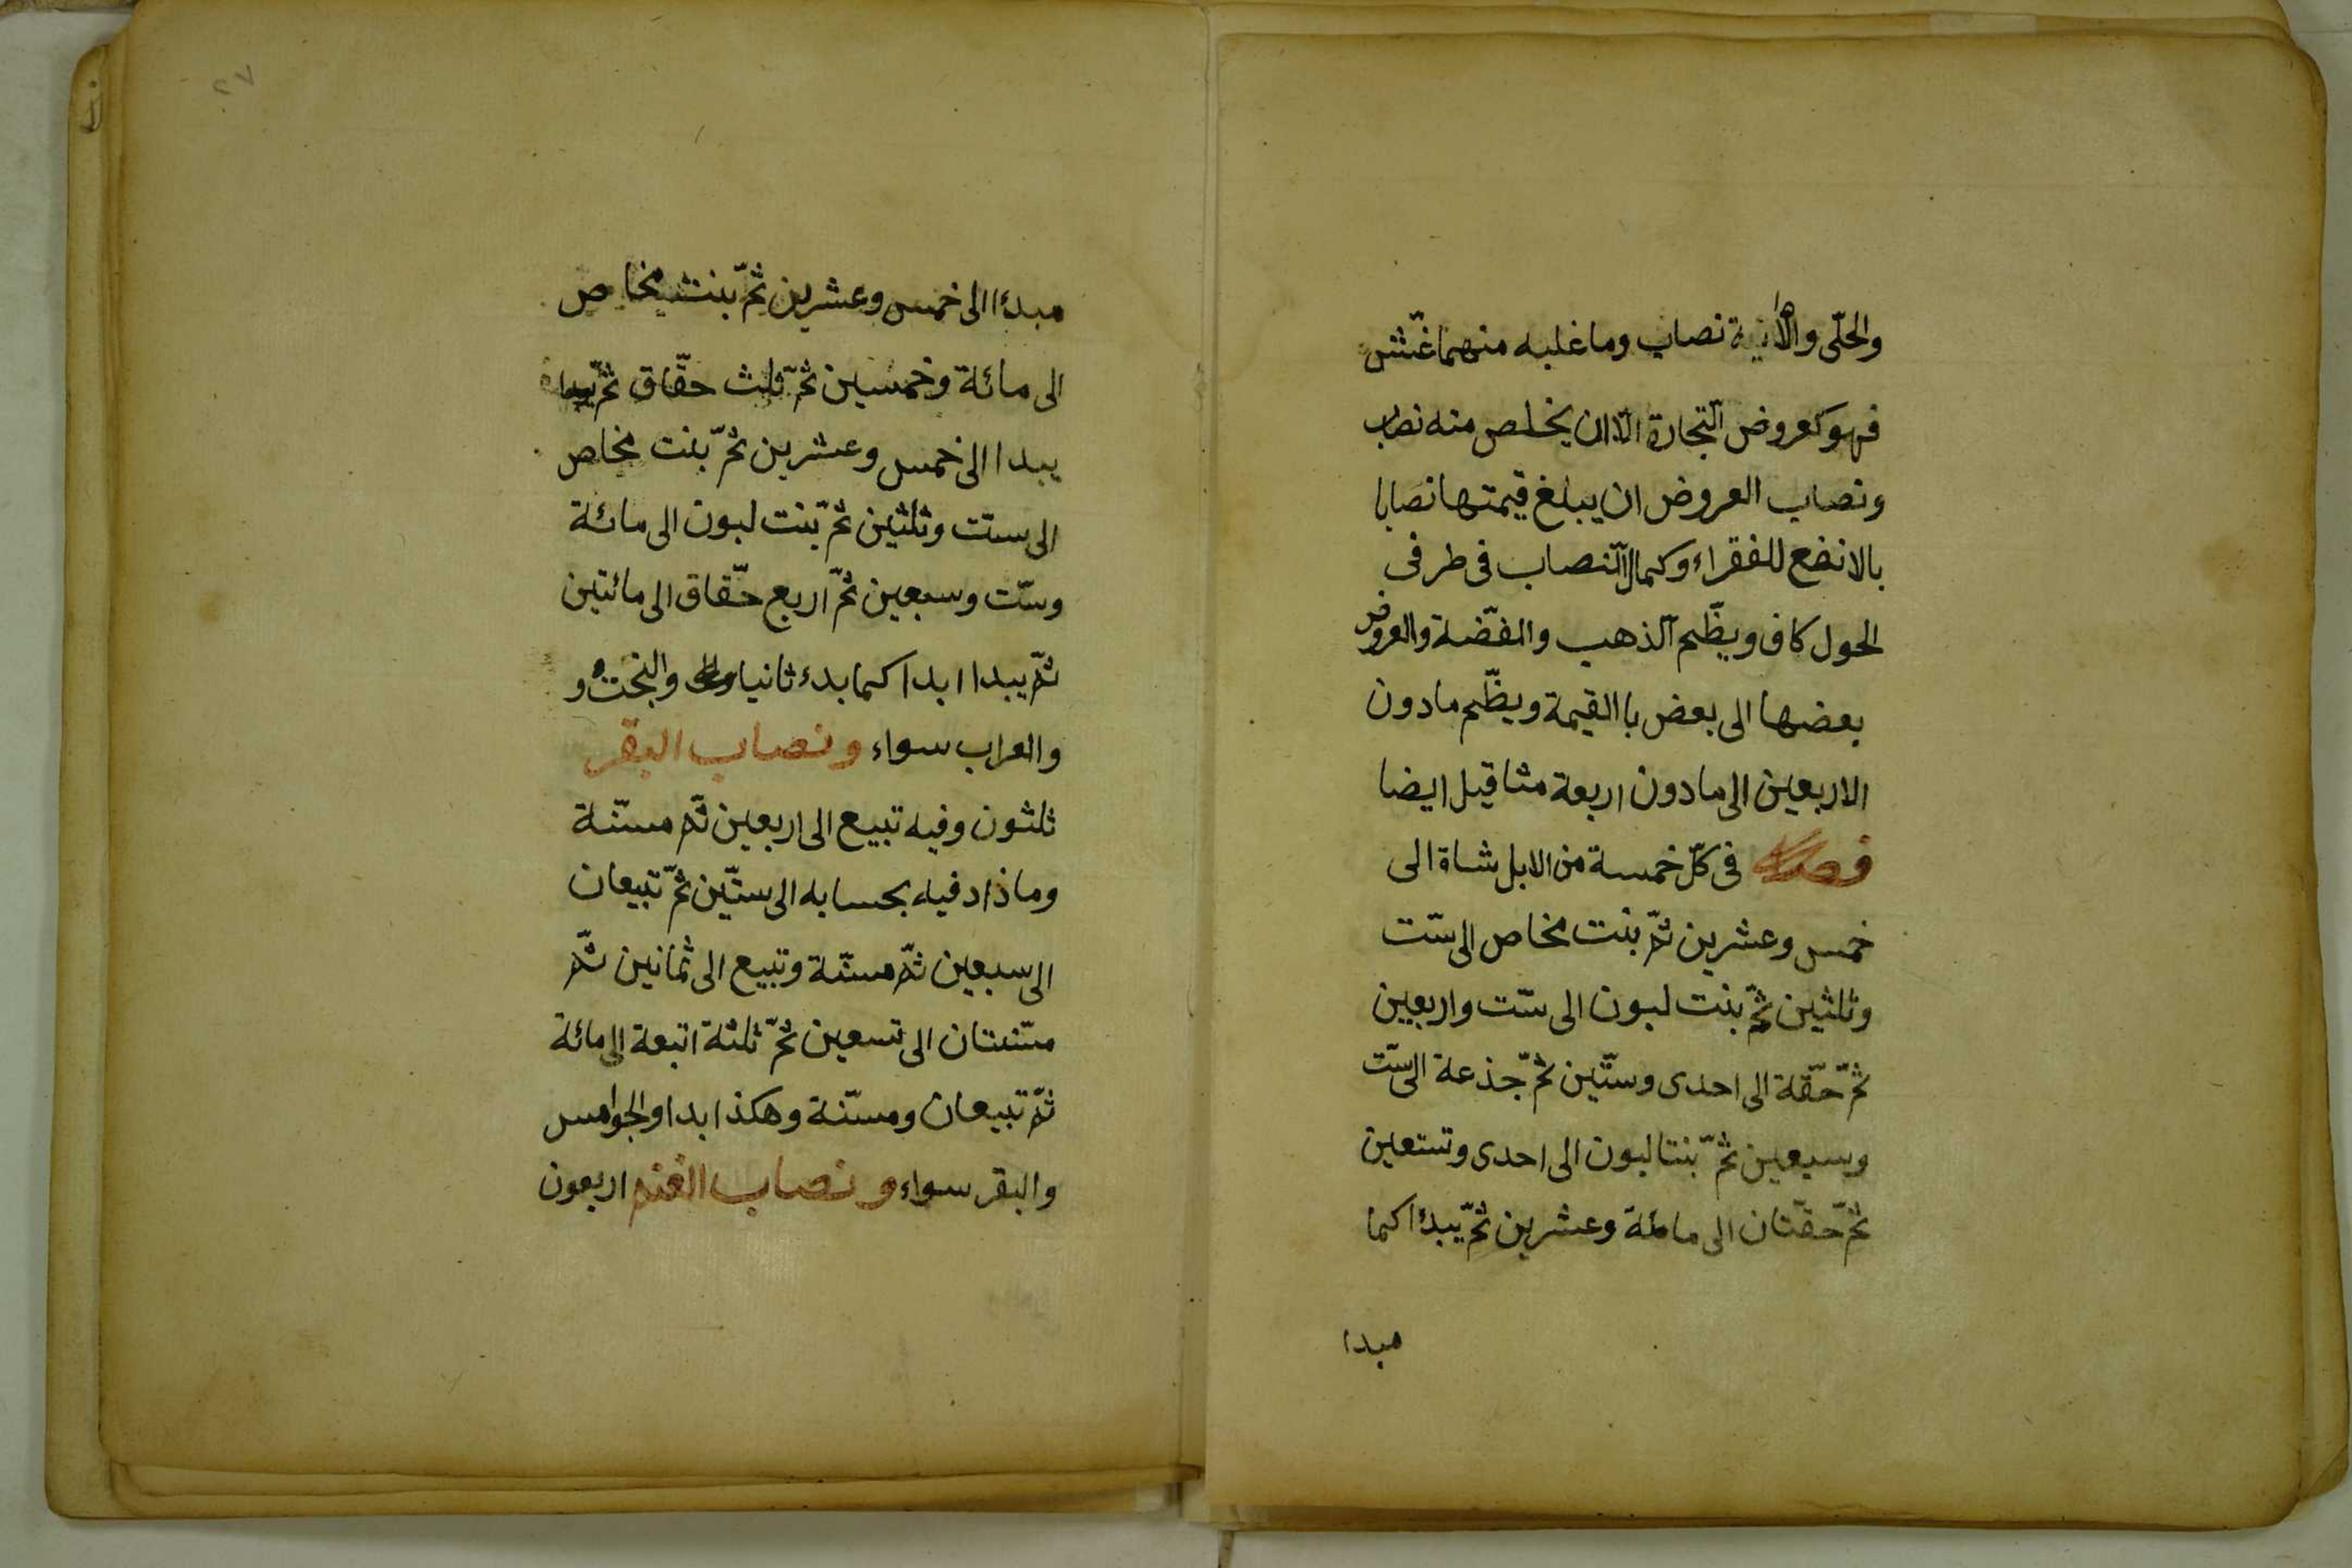 والحلّى والآنية نصاب وما غلبه منهما غشّ
فهو كعروض التّجارة الّا ان يخلص منه نصاب
ونصاب العروض ان يبلغ قيمتها نصابا
بالانفع للفقراء وكمال النّصاب فى طرفى
الحول كاف ويظّم الذهب والفضّة والعروض
بعضها الى بعض باالقيمة ويظّم مادون
الاربعين الى مادون اربعة مثاقيل ايضا
فصل فى كلّ خمسة من الابل شاة الى
خمس وعشرين ثمّ بنت مخاص الى ستّ
وثلثين ثمّ بنت لبون الى ستّ واربعين
ثمّ حقّة الى احدى وستّين ثمّ جذعة الى ستّ
وسبعين ثمّ بنتا لبون الى احدى وتسعين
ثمّ حقّتان الى مائة وعشرين ثمّ يبدءا كما
مبدا
٢٧
مبدءا الى خمس وعشرين ثمّ بنت مخاص
الى مائة وخمسين ثمّ ثلث حقّاق ثمّ
يبدا الى خمس وعشرين ثمّ بنت مخاص
الى ستّ وثلثين ثمّ بنت لبون الى مائة
وستّ وسبعين ثمّ اربع حقّاق الى مائتين
ثمّ يبدا ابدا كما بدء ثانيا والبخت و
والعراب سواء ونصاب البقر
ثلثون وفيه تبيع الى اربعين ثمّ مسنّة
وماذاد فيه بحسابه الى ستّين ثمّ تبيعان
الى سبعين ثمّ مسنّة وتبيع الى ثمانين ثمّ
مسنتان الى تسعين ثمّ ثلثة اتبعة الى مائة
ثمّ تبيعان ومسنّة وهكذا ابدا والجوامس
والبقر سواء ونصاب الغنم اربعون